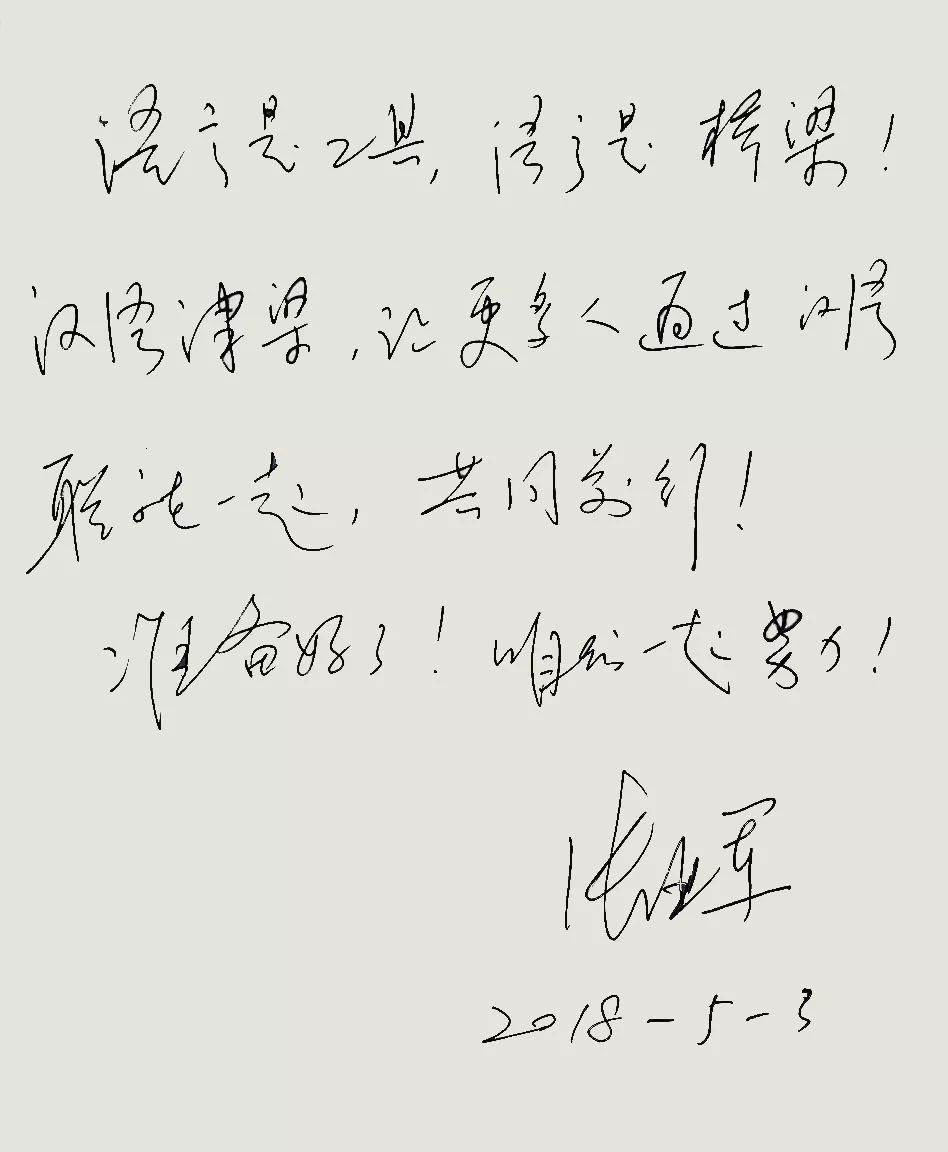 语言是工具，语言是桥梁！
汉语津梁，让更多人通过汉语
联在一起，共同前行！
准备好了！咱们一起努力！
2018-5-3